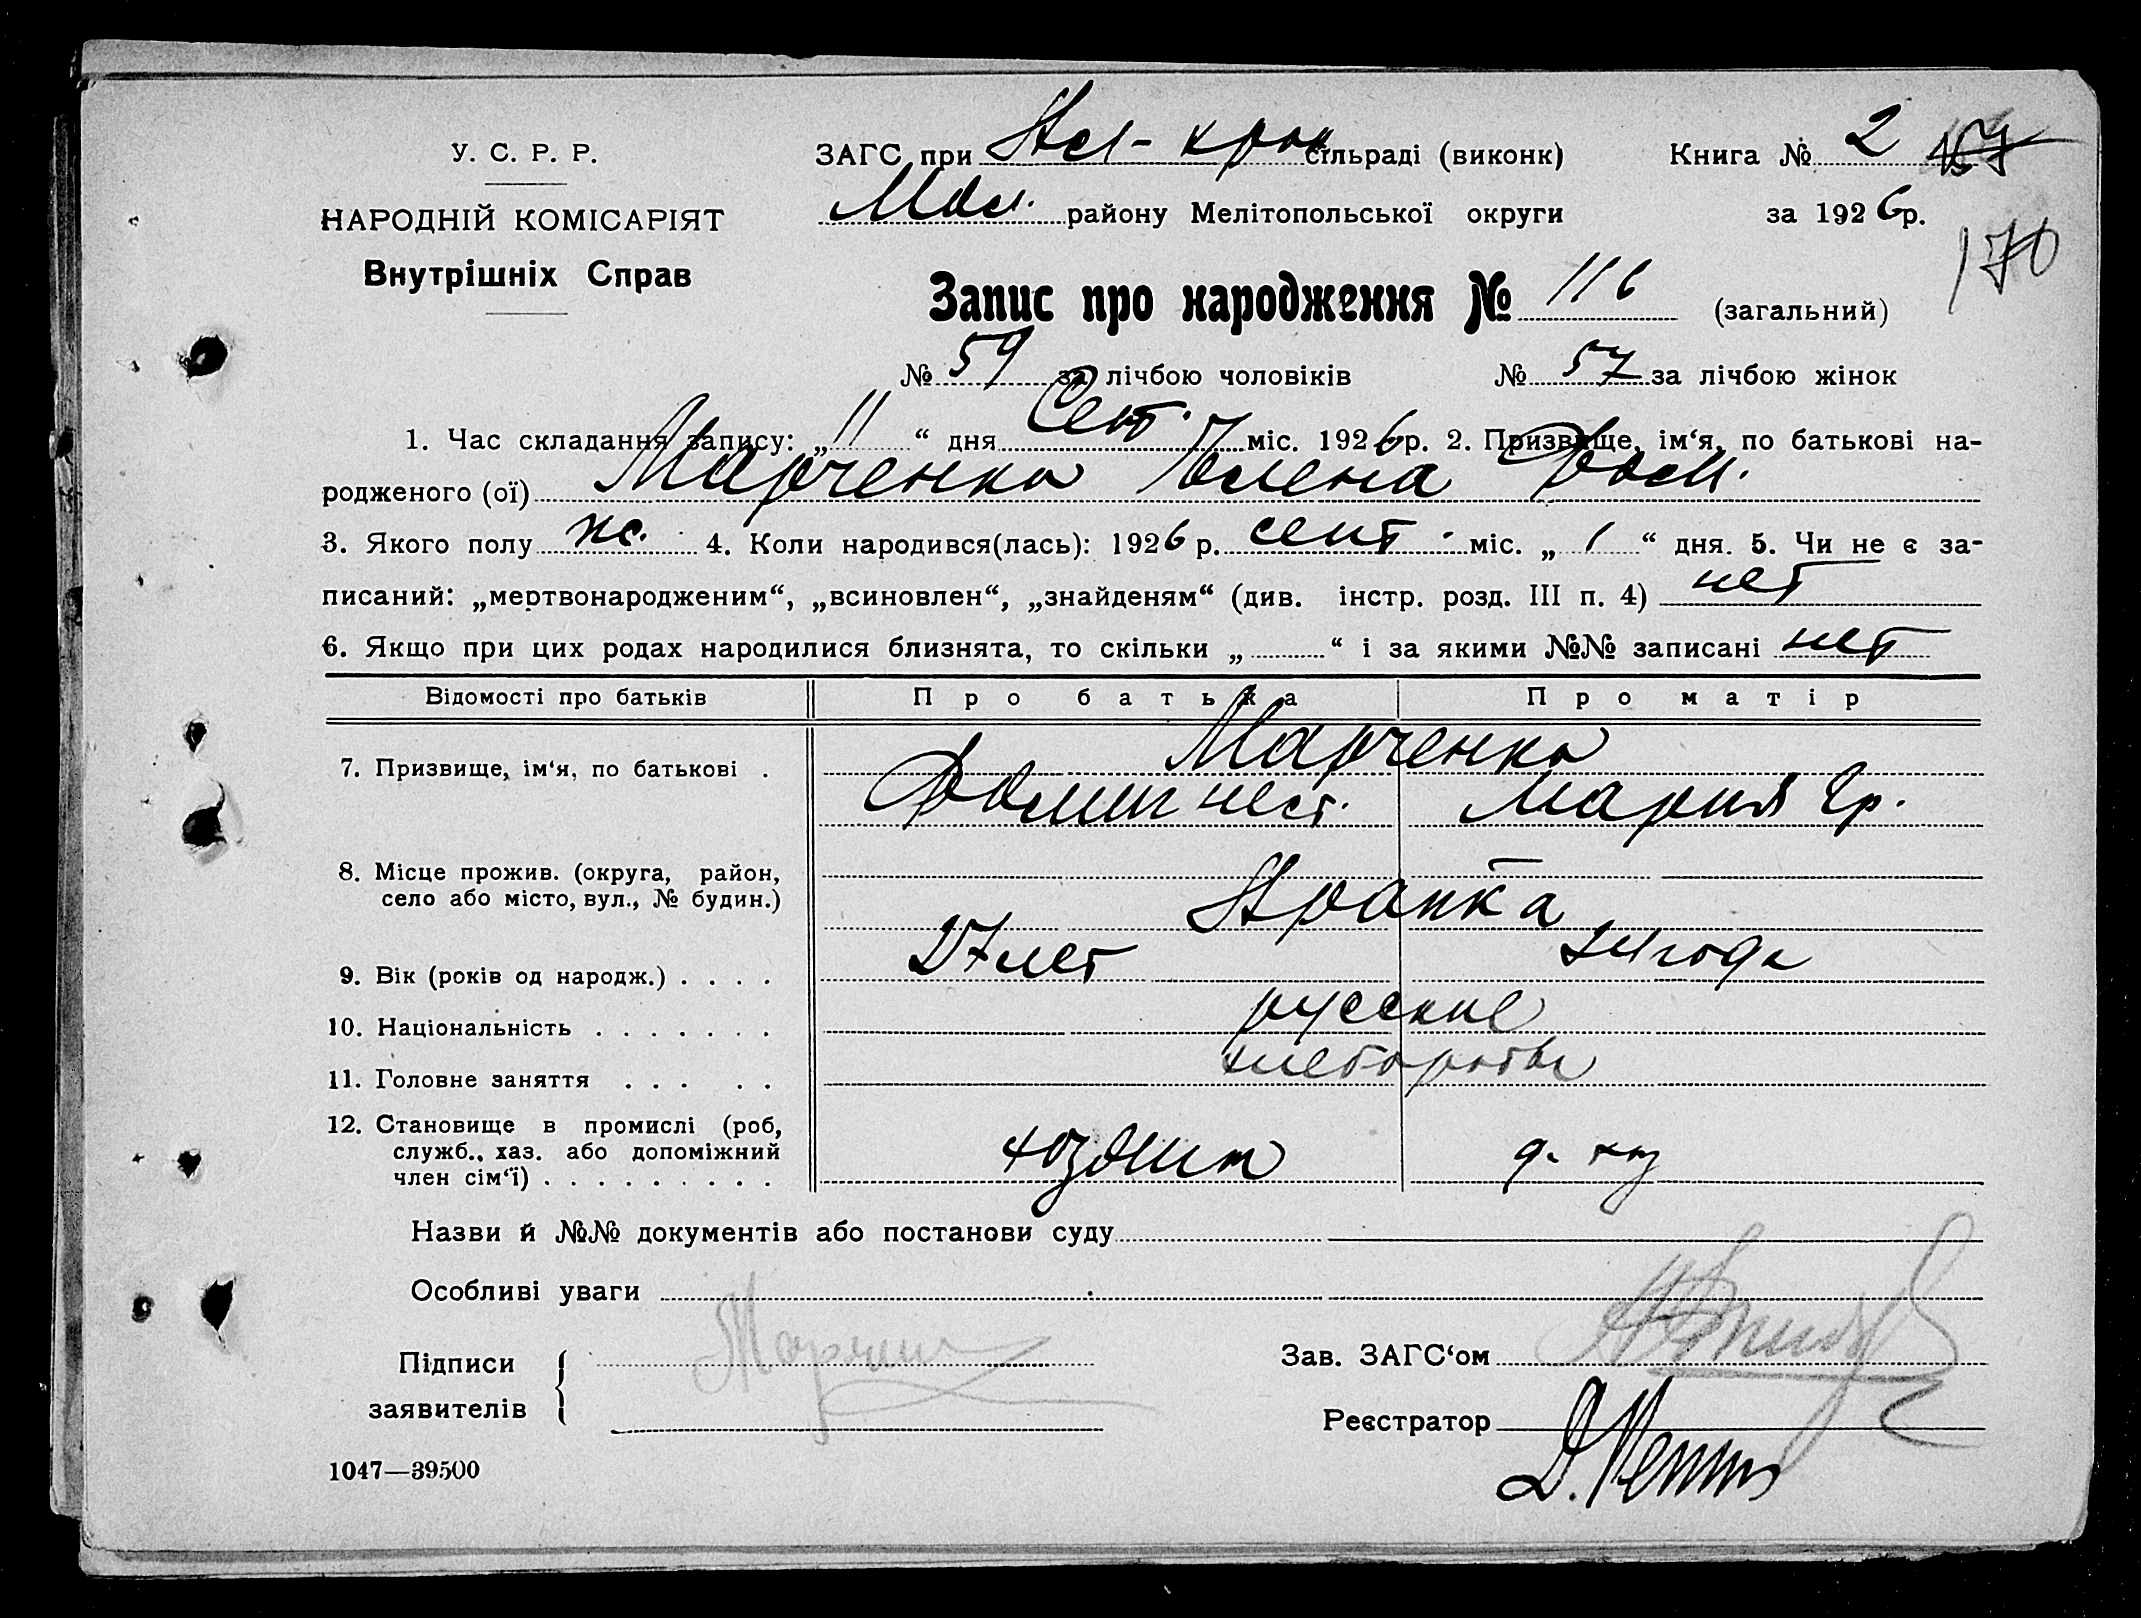 У. С. Р. Р.
НАРОДНІЙ КОМІСАРІЯТ
Внутрішніх Справ
ЗАГС при сільраді (виконк) Книга № 2 167
району Мелітопольської округи за 1926 р.
170
Запис про народження № 116 (загальний)
№ 59 за лічбою чоловіків № 57 за лічбою жінок
1. Час складання запису: „11“ дня Сент. міс. 1926 р. 2. Призвище, ім‘я, по батькові на-
родженого (ої) Марченко Елена Фом.
3. Якого полу ж. 4. Коли народився(лась): 1926 р. сент. міс. „1“ дня. 5. Чи не є за-
писаний: „мертвонародженим“, „всиновлен“, „знайденям“ (див. інстр. розд. III п. 4) нет
6. Якщо при цих родах народилися близнята, то скільки „ “ і за якими №№ записані нет
Відомості про батьків Про батька Про матір
7. Призвище, ім‘я, по батькові . Марченко
Нест. Мария Гр.
8. Місце прожив. (округа, район,
село або місто, вул., № будин.)
9. Вік (років од народж.) . . . . 27 лет 24 года
10. Національність . . . . . . . русские
11. Головне заняття . . . . . хлеборобы
12. Становище в промислі (роб,
служб., хаз. або допоміжний
член сім‘ї) . . . . . . . . . хозяин д. хоз
Назви й №№ документів або постанови суду
Особливі уваги
Підписи
заявителів
Зав. ЗАГС‘ом
Реєстратор
1047—39500